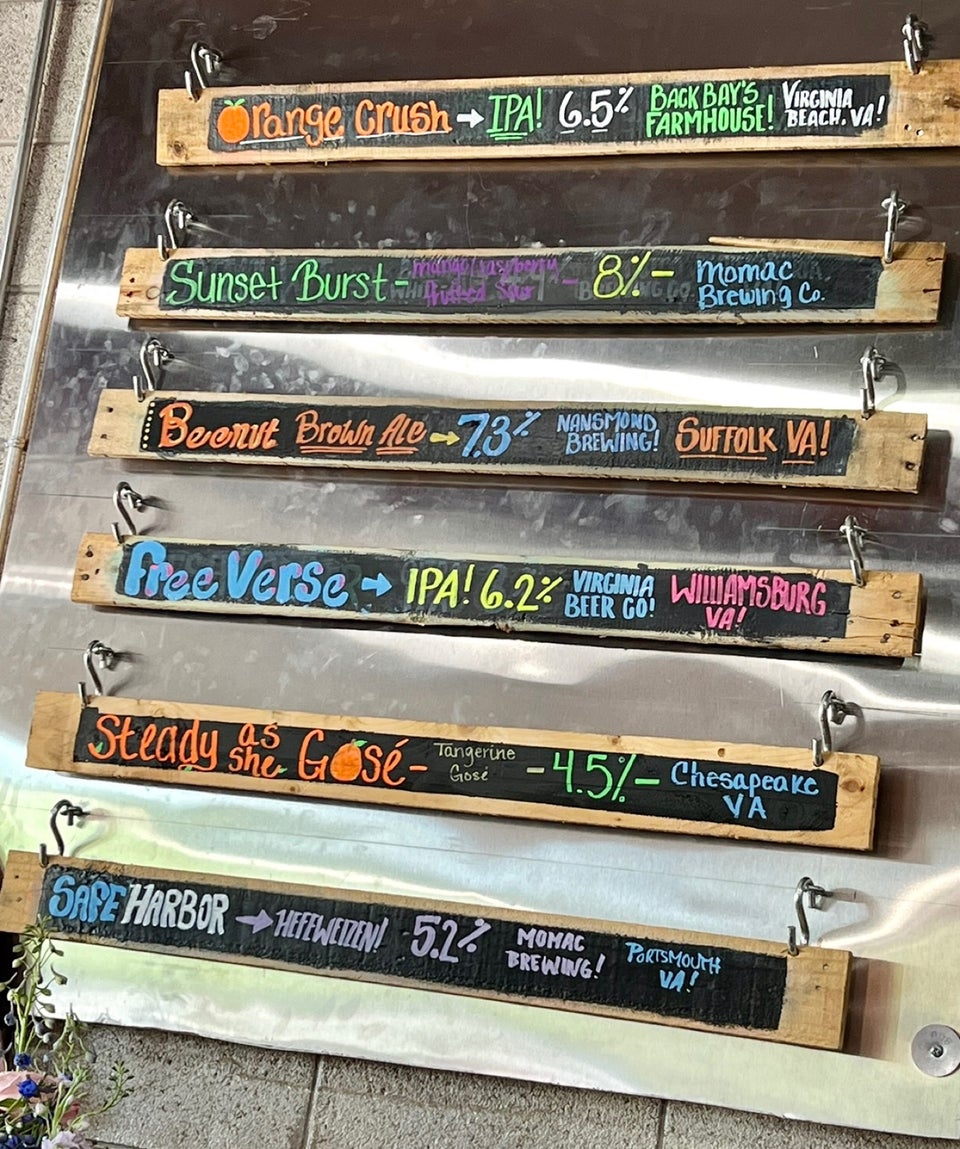 Orange Crush → IPA! 6.5% BACK BAY'S FARMHOUSE! VIRGINIA BEACH, VA!
Sunset Burst - mango raspberry fruited sour - 8% - Momac Brewing Co.
Beenut Brown Ale → 7.3% NANSMOND BREWING! SUFFOLK VA!
Free Verse → IPA! 6.2% VIRGINIA BEER CO! WILLIAMSBURG VA!
Steady as she Gosé - Tangerine Gosé - 4.5% - Chesapeake VA
SAFE HARBOR → HEFEWEIZEN! 5.2% MOMAC BREWING! PORTSMOUTH VA!